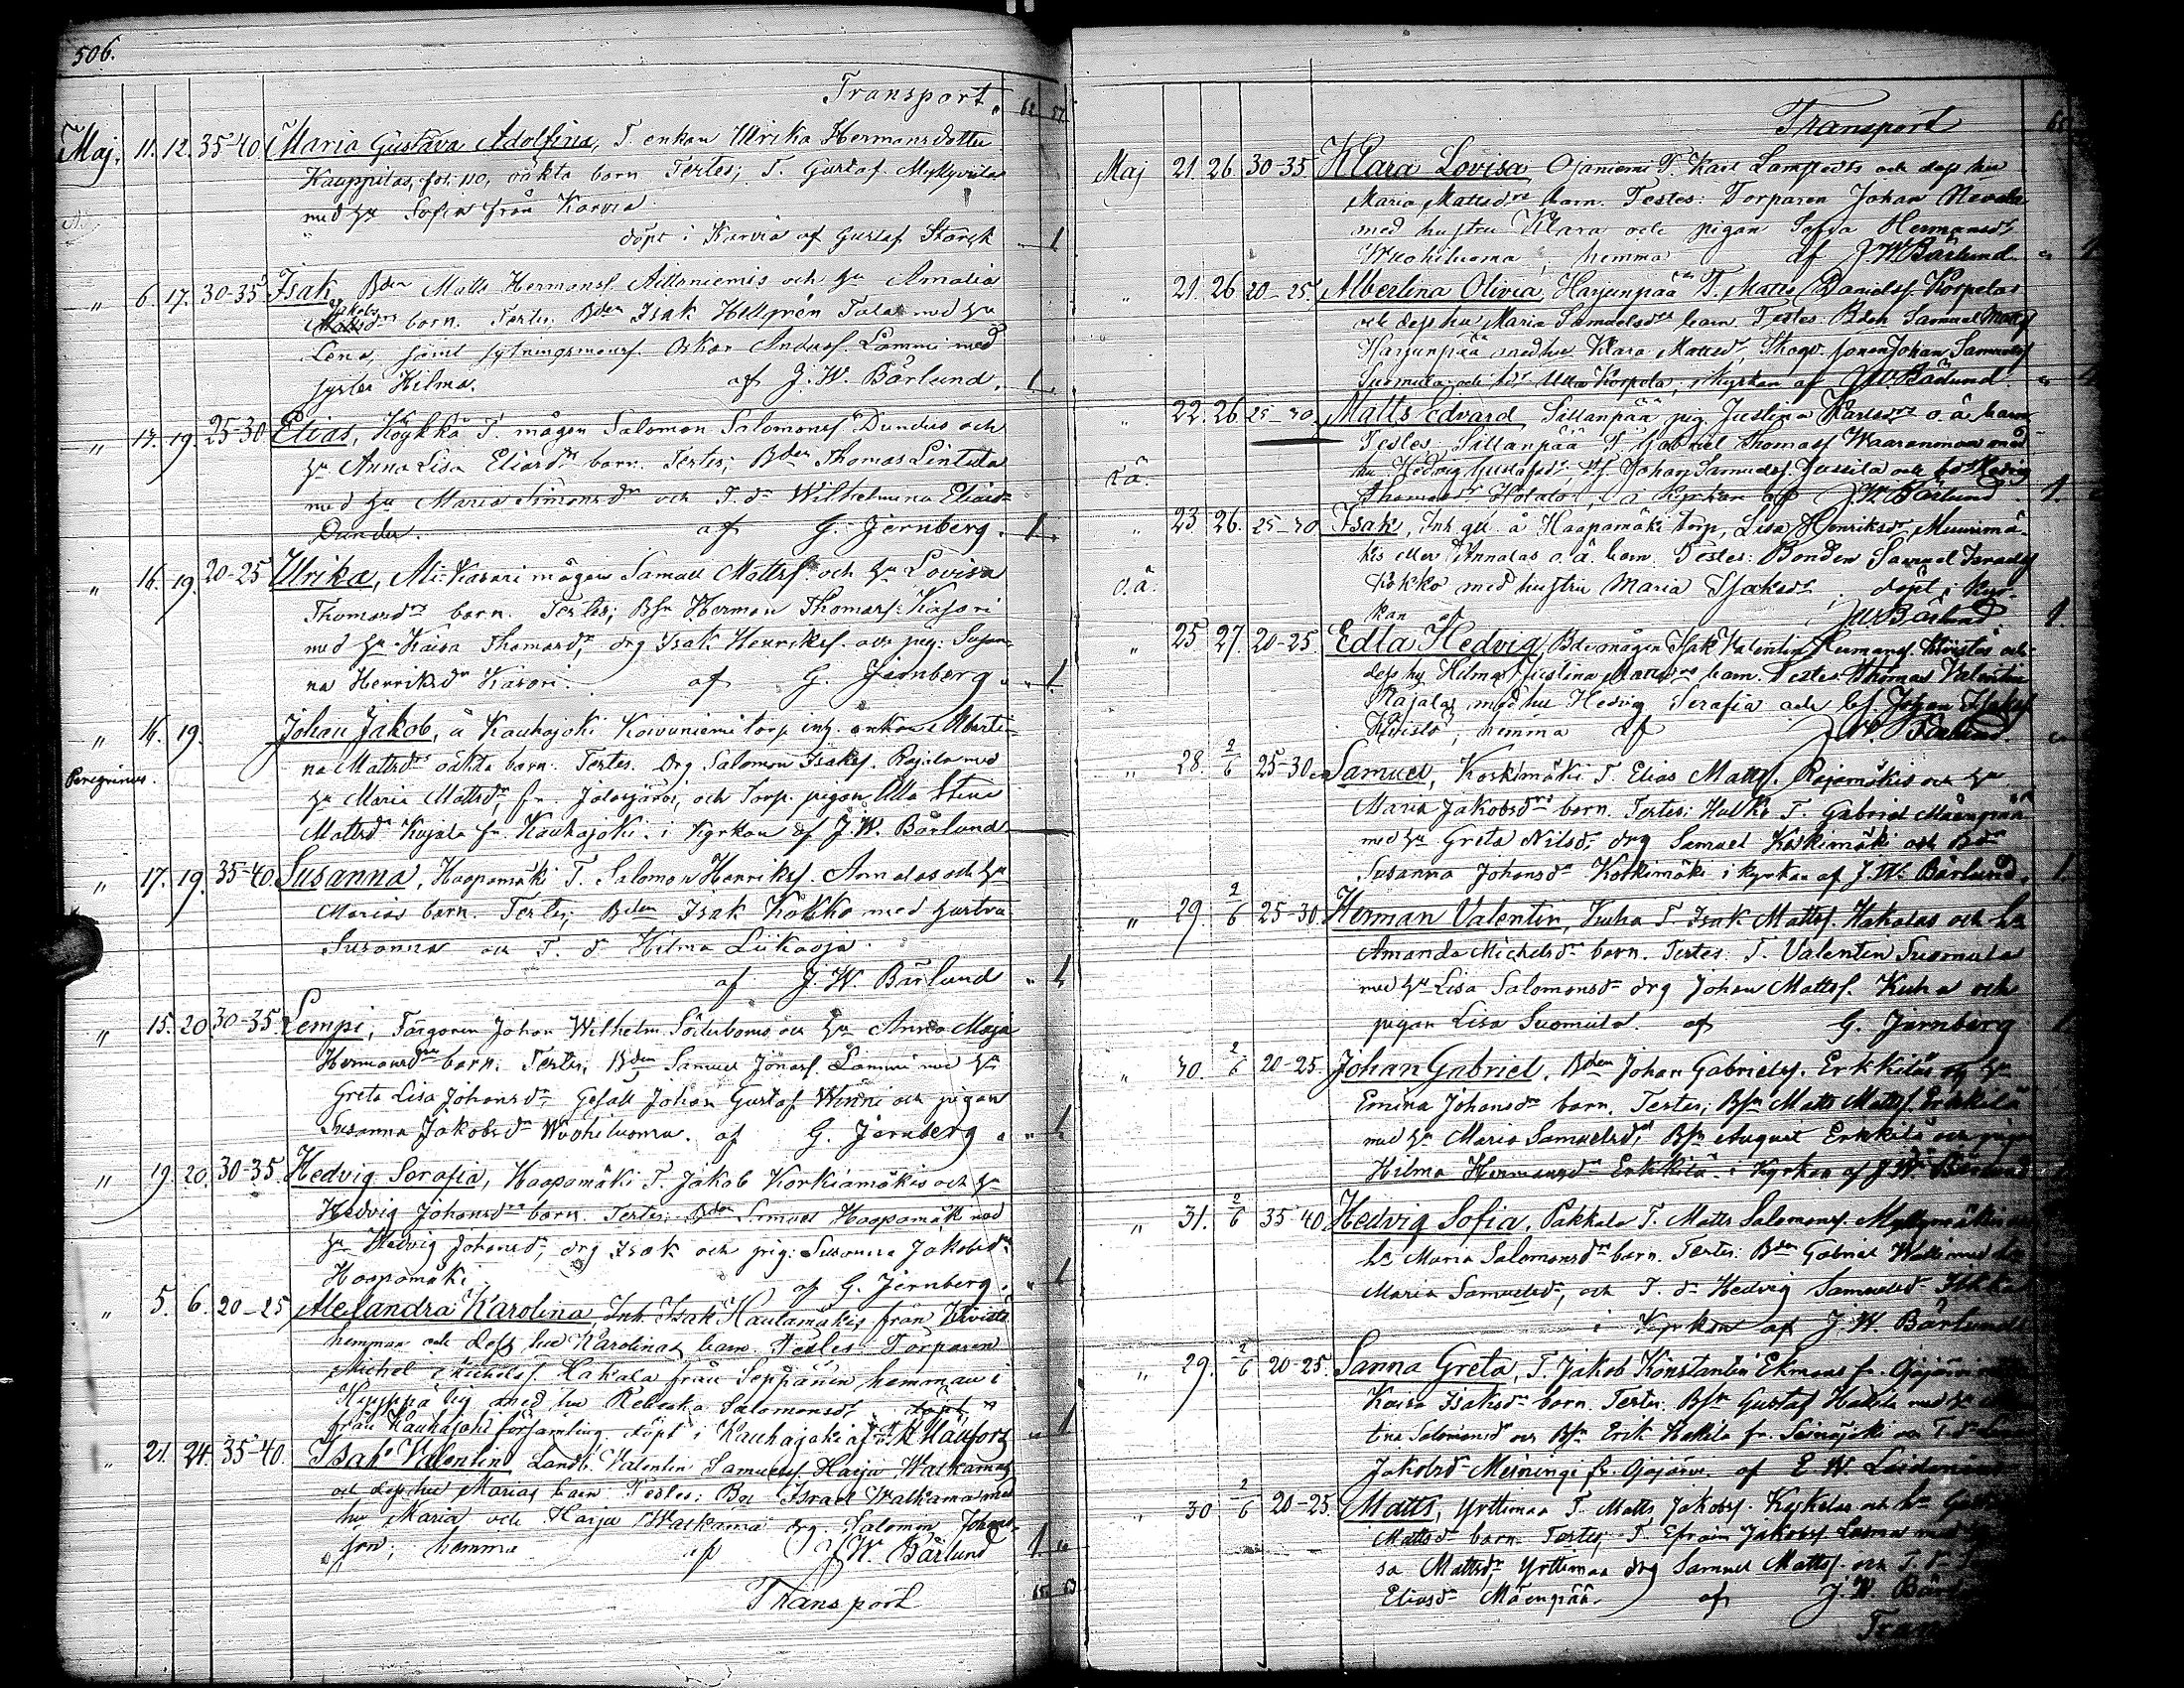 506.
Transport. 62 57
Maj. 11. 12. 35-40 Maria Gustava Adolfina, T. enkan Ulrika Hermansdotter
Kauppilas, fol. 110, oäkta barn. Testes; T. Gustaf Myllyviita
med hu Sofia från Karvia
döpt i Karvia af Gustaf Starck 1
" 6. 17. 30-35 Isak Bden Matts Hermanss. Aittoniemis och hu Amalia
Jakobsdrs barn. Testes; Bden Isak Hellgrén Tala med hu
Lena, samt sytningsmans. Oskar Anderss. Lammi med
syster Hilma. af J. W. Bärlund. 1
" 17. 19. 25-30 Elias, Köykkä T. mågen Salomon Salomonss. Dundus och
hu Anna Lisa Eliasdrs barn. Testes; Bden Thomas Lintula
med hu Maria Simonsdr och T. dr Wilhelmina Eliasdr
Dunder. af G. Jernberg. 1
" 16. 19. 20-25 Ulrika, Ali-Kasari mågen Samuel Mattss. och hu Lovisa
Thomasdrs barn. Testes; Bsn Herman Thomass. Kasari
med hu Kaisa Thomasdr, drg Isak Henrikss. och pig. Susan-
na Henriksdr Kasari. af G. Jernberg " 1
" 16. 19. Johan Jakob, å Kauhajoki Koivuniemi torp inh. enkan Alberti-
Peregrinus. na Mattsdrs oäkta barn. Testes. Drg Salomon Isakss. Rajala med
hu Maria Mattsdr, fr. Jalasjärvi, och Torp. pigan Ulla Stina
Mattsdr Kujala fr. Kauhajoki. i kyrkan af J. W. Bärlund
" 17. 19. 35-40. Susanna, Haapamäki T. Salomon Henrikss. Annalas och hu
Marias barn. Testes; Bden Isak Kokko med hustru
Susanna och T. d Hilma Liikaoja.
af J. W. Bärlund " 1
" 15. 20. 30-35. Lempi, Färgaren Johan Wilhelm Söderboms och hu Anna Maja
Hermansdrs barn. Testes; Bden Samuel Jonass. Lammi med hu
Greta Lisa Johansdr, Gesäll Johan Gustaf Winni och pigan
Susanna Jakobsdr Wuohiluoma. af G. Jernberg " 1
" 19. 20. 30-35 Hedvig Serafia, Haapamäki T. Jakob Korkiamäkis och hu
Hedvig Johansdrs barn. Testes; Bden Samuel Haapamäki med
hu Hedvig Johansdr, drg Isak och pig: Susanna Jakobsdr
Haapamäki af G. Jernberg. " 1
" 5. 6. 20-25 Alexandra Karolina, Inh. Isak Hautamäkis från Kivistö
hemman och dess hu Karolinas barn. Testes: Torparen
Michel Michelss. Hakala från Seppänen hemman i
Hyyppä by med hu Rebecka Salomonsdr döpt
från Kauhajoki församling. döpt i Kauhajoki af K Hällfors " 1
" 21. 24. 35-40. Isak Valentin Landb. Valentin Samuelss. Harju Walkamas
och dess hu Marias barn. Testes: Bn Israel Walkama med
hu Maria och Harju Walkama drg. Salomon Johans-
son; hemma af J. W. Bärlund 1
Transport
Transport
Maj 21. 26. 30-35 Klara Lovisa Ojaniemi T. Karl Lamstedts och dess hu
Maria Mattsdrs barn. Testes: Torparen Johan Nevala
med hustru Klara och pigan Sofia Hermansdr
Wuohiluoma, hemma af J W Bärlund.
" 21. 26 20-25. Albertina Olivia, Harjunpää T. Matts Danielss. Korpelas
och dess hu Maria Samuelsdrs barn. Testes: Bden Samuel Mattss
Harjunpää med hu Klara Mattsdr, Skogv. sonen Johan Samuelss
Suomela och Ulla Korpela, i kyrkan af J W Bärlund.
" 22. 26. 25-30 Matts Edvard Sillanpää pig. Justina Karlsdrs o. ä. barn
Testes: Sillanpää T. Gabriel Thomass Waaranmaa med
o.ä. hu Hedvig Gustafsdr, Johan Samuelss. Jussila och Hedvig
Thomasdr Hotala; i kyrkan af J. W. Bärlund 1.
" 23 26. 25-30 Isak, Inh. qu. å Haapamäki torp, Lisa Henriksdr Muurimä-
kis eller Annalas o. ä. barn. Testes: Bonden Samuel Israelss
o.ä. Kokko med hustru Maria Isaksdr ; döpt i kyr-
kan af J W Bärlund. 1.
" 25 27. 20-25. Edla Hedvig Bdemågen Isak Valentin Hermanss. Kivistös och
dess hu Hilma Justina Mattsdrs barn. Testes: Thomas Valentin
Rajalas med hu Hedvig Serafia och Johan Isakss
Kivistö; hemma af J. W. Bärlund.
" 28. 2/6 25-30 Samuel, Koskimäki T. Elias Mattss. Rajamäkis och hu
Maria Jakobsdrs barn. Testes; Hulkko T. Gabriel Mäenpää
med hu Greta Nilsdr, drg Samuel Koskimäki och Bdr
Susanna Johansdr Koskimäki i kyrkan af J. W. Bärlund. 1.
" 29. 2/6 25-30 Herman Valentin, Kuha T. Isak Mattss. Hakalas och hu
Amanda Michelsdrs barn. Testes: T. Valentin Suomela
med hu Lisa Salomonsdr drg Johan Mattss. Kuha och
pigan Lisa Suomela. af G. Jernberg
" 30. 2/6 20-25. Johan Gabriel, Bden Johan Gabrielss. Erkkiläs och hu
Emma Johansdrs barn. Testes; Bsn Matts Mattss. Erkkilä
med hu Maria Samuelsdr, Bsn August Erkkilä och pigan
Hilma Hermansdr Erkkilä. i kyrkan af J. W. Bärlund
" 31. 2/6 35-40 Hedvig Sofia, Pakkala T. Matts Salomonss. Myllymäkis
hu Maria Salomonsdrs barn. Testes: Bden Gabriel Walli med hu
Maria Samuelsdr, och T. dr Hedvig Samuelsdr
i Kyrkan af J. W. Bärlund
" 29. 2/6 20-25. Sanna Greta, T. Jakob Konstantin Ekmans fr. Ojajärvi
Kaisa Isaksdr barn. Testes: Bsn Gustaf Hakila med hu
tina Salomonsd och Bsn Erik Hakila fr. Seinäjoki och T. dr
Jakobsdr Meiningi fr. Ojajärvi. af E. W.
" 30 2/6 20-25. Matts, Yrttimaa T. Matts Jakobss. Keskelas och hu
Mattsdr barn. Testes; T. Efraim Jakobss Luoma med
sa Mattsdr Yrttimaa drg Samuel Mattss. och T. dr
Eliasdr Mäenpää. af J. W.